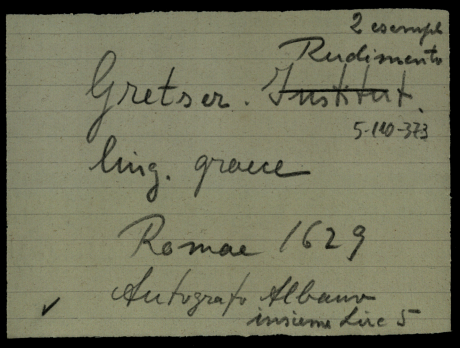 2 esempl
Rudimenta
Gretser. Institut.
5-110-373
ling. graece
Romae 1629
Autografo Albano
insieme Lire 5